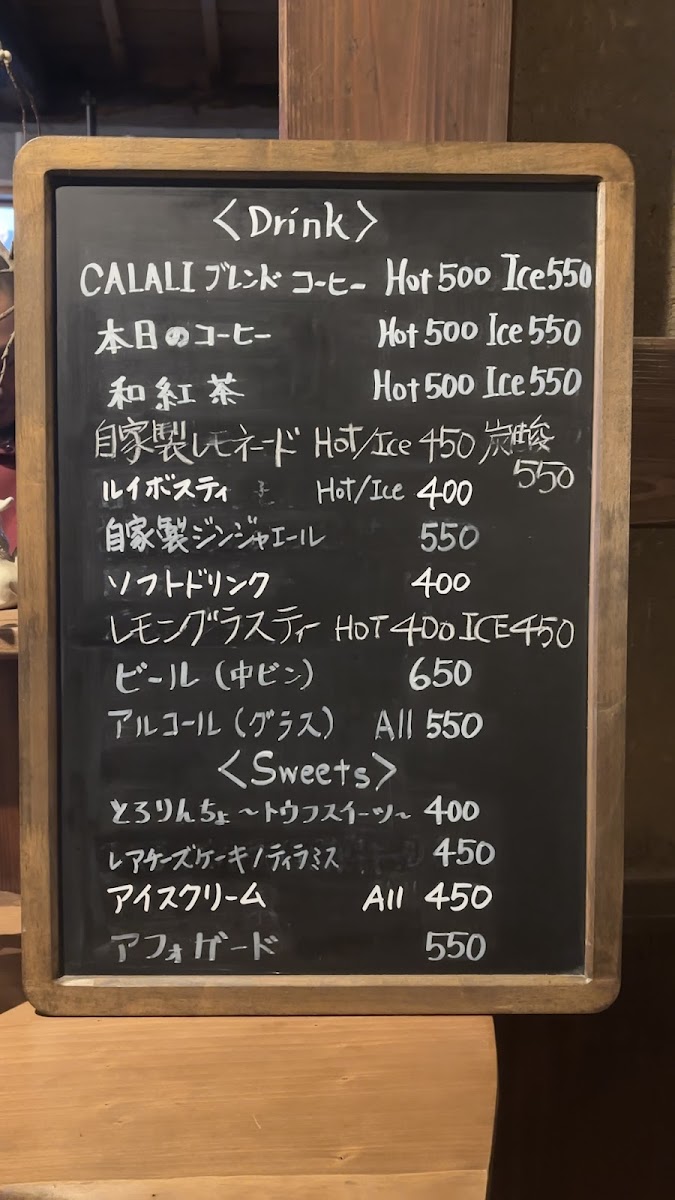 〈Drink〉
CALALI ブレンド コーヒー Hot 500 Ice 550
本日のコーヒー Hot 500 Ice 550
和紅茶 Hot 500 Ice 550
自家製レモネード Hot/Ice 450 炭酸
550
ルイボスティ Hot/Ice 400
自家製ジンジャエール 550
ソフトドリンク 400
レモングラスティー HOT 400 ICE 450
ビール (中ビン) 650
アルコール (グラス) All 550
〈Sweets〉
とろりんちょ 〜トウフスイーツ〜 400
レアチーズケーキ/ティラミス 450
アイスクリーム All 450
アフォガード 550